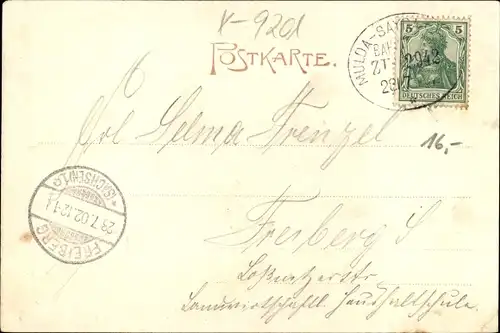 V-9201
POSTKARTE.
MULDA-SA
BAH
ZT 2942
28 7
5 5
DEUTSCHES REICH
Frl Selma Frenzel
16,-
FREIBERG
(SACHSEN) 1 a
28.7.02.12-1
Freiberg S
Loßnitzerstr
Landwirtschaftl. Haushaltschule.